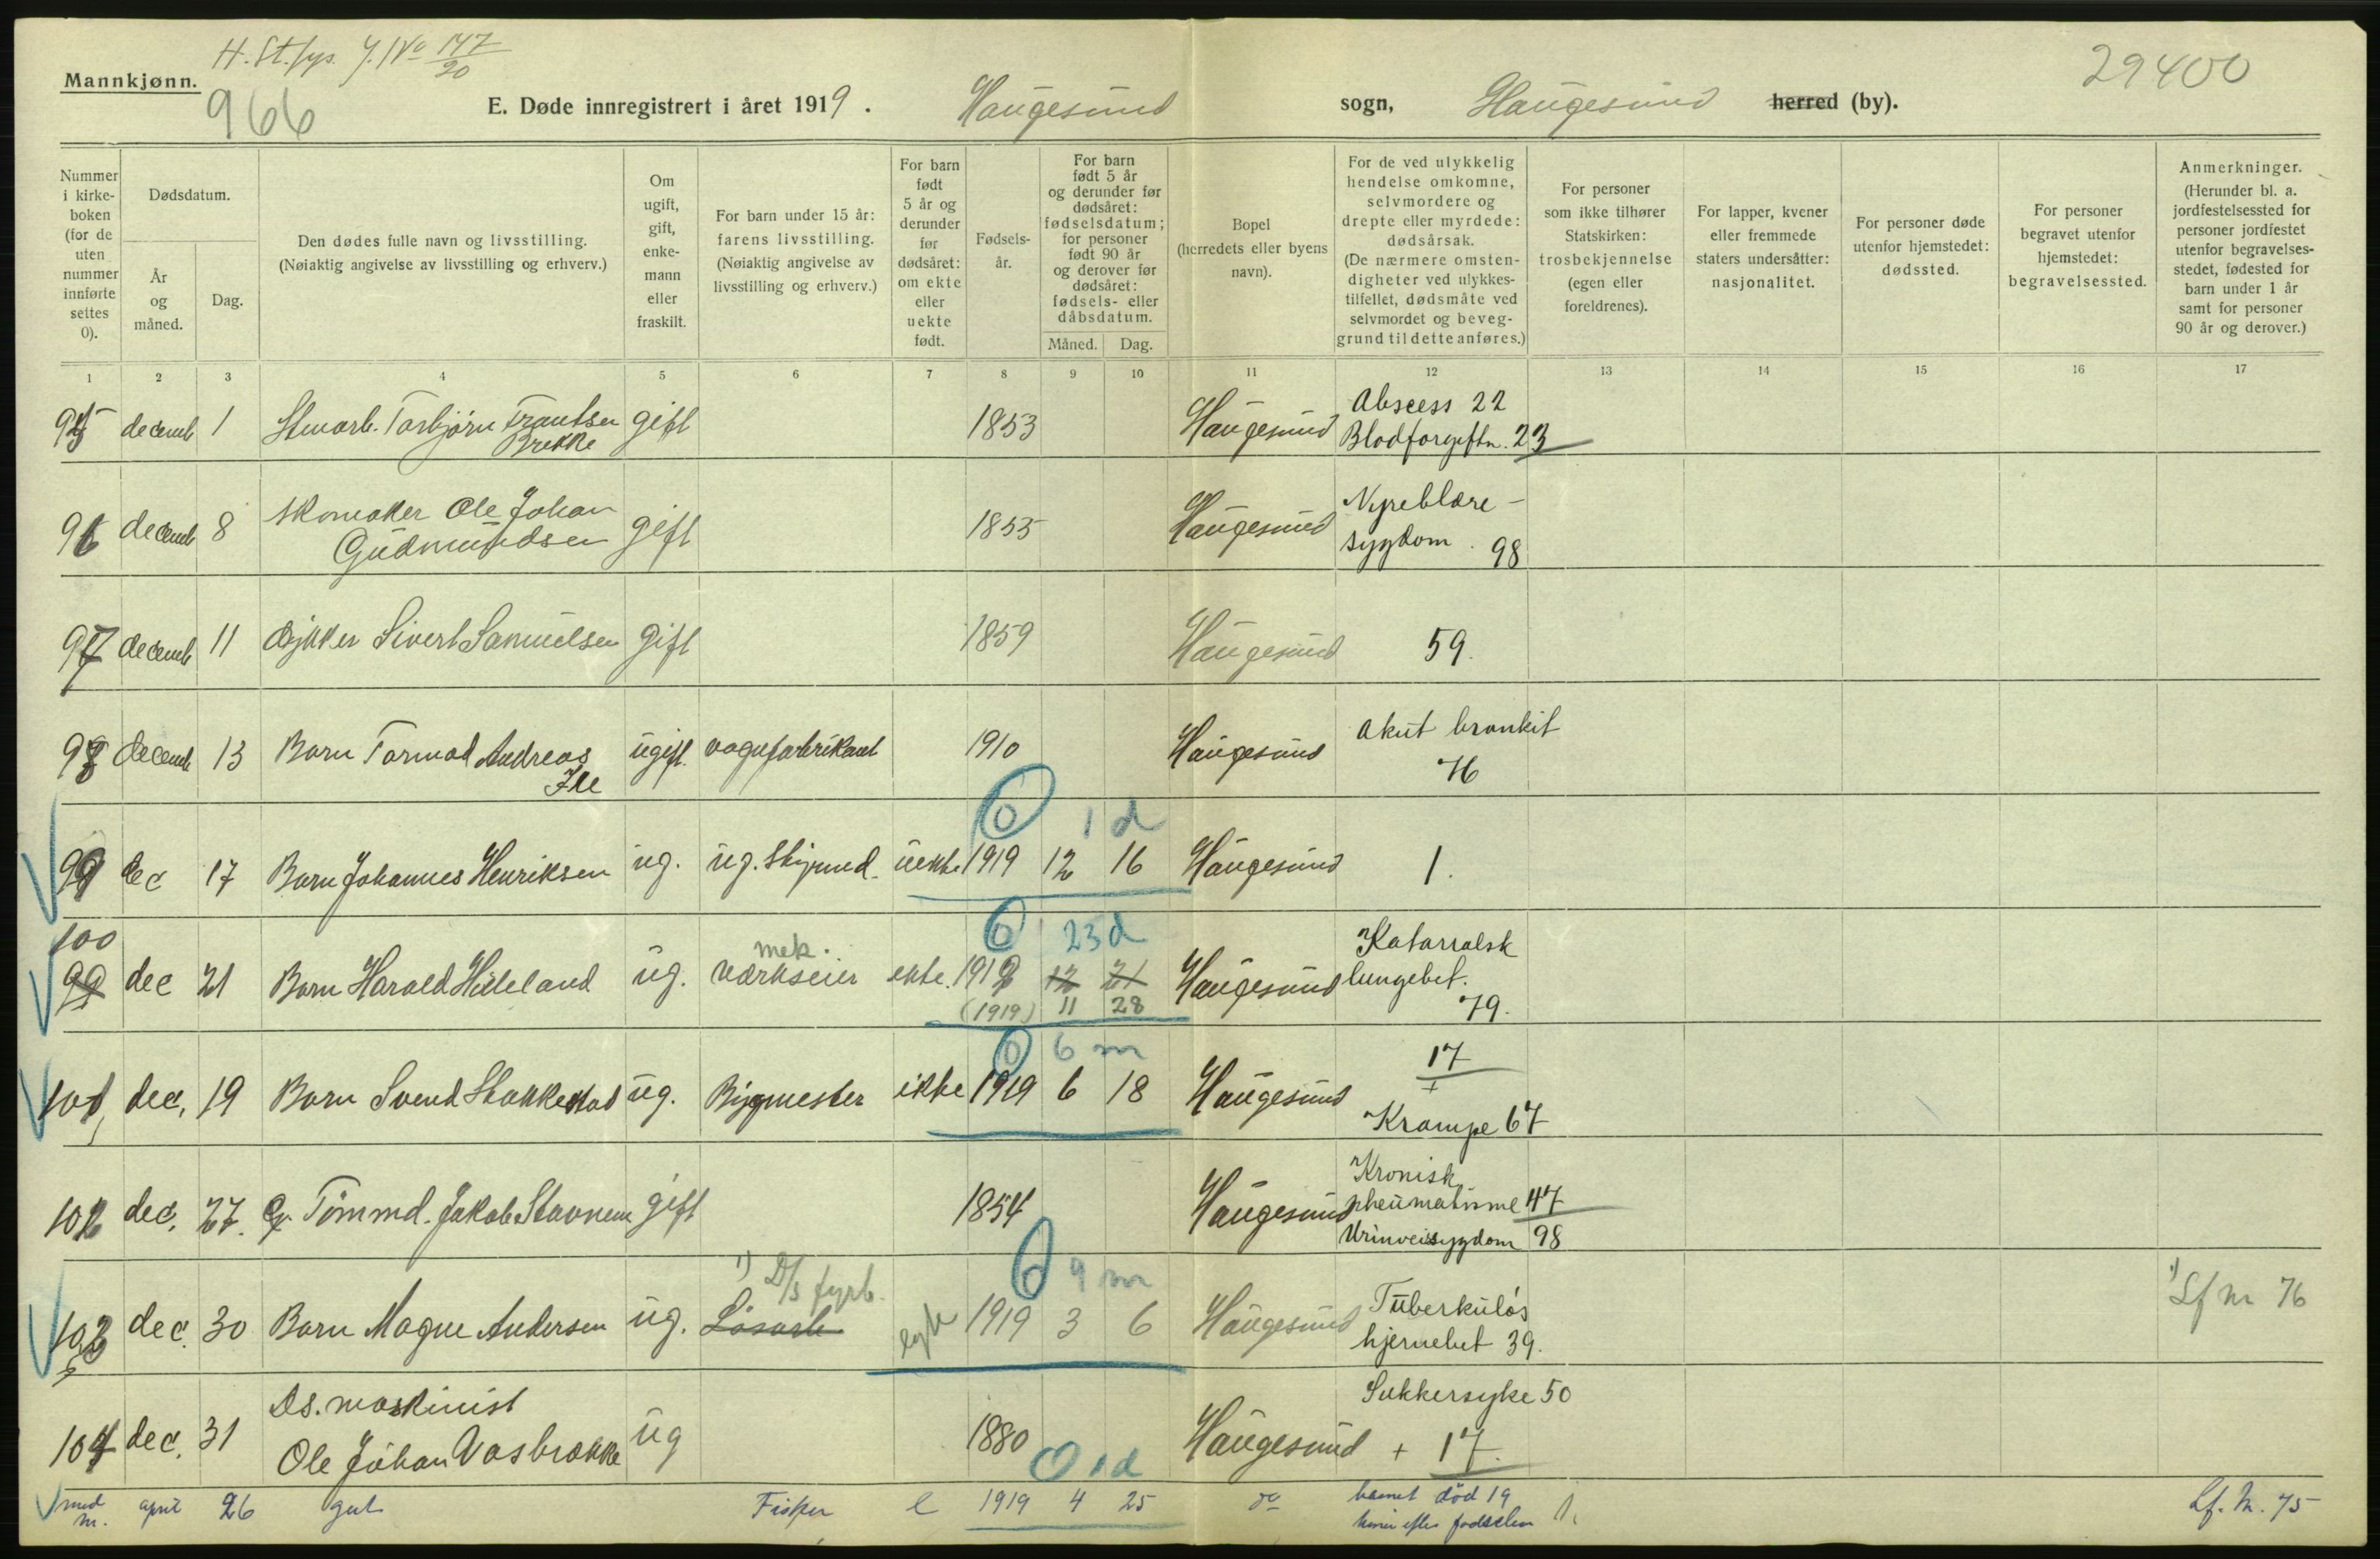 H. St.
147
20
Mannkjønn.
966
29400
E. Døde innregistrert i året 1919. Haugesund sogn, Haugesund herred (by).
Nummer i kirkeboken (for de uten nummer innførte settes 0).
Dødsdatum.
År og måned.
Dag.
Den dødes fulle navn og livsstilling. (Nøiaktig angivelse av livsstilling og erhverv.)
Om ugift, gift, enkemann eller fraskilt.
For barn under 15 år: farens livsstilling. (Nøiaktig angivelse av livsstilling og erhverv.)
For barn født 5 år og derunder før dødsåret: om ekte eller uekte født.
Fødselsår.
For barn født 5 år og derunder før dødsåret: fødselsdatum; for personer født 90 år og derover før dødsåret: fødsels- eller dåbsdatum.
Måned. Dag.
Bopel (herredets eller byens navn).
For de ved ulykkelig hendelse omkomne, selvmordere og drepte eller myrdede: dødsårsak. (De nærmere omstendigheter ved ulykkestilfellet, dødsmåte ved selvmordet og beveggrund til dette anføres.)
For personer som ikke tilhører Statskirken: trosbekjennelse (egen eller foreldrenes).
For lapper, kvener eller fremmede staters undersåtter: nasjonalitet.
For personer døde utenfor hjemstedet: dødssted.
For personer begravet utenfor hjemstedet: begravelsessted.
Anmerkninger. (Herunder bl. a. jordfestelsessted for personer jordfestet utenfor begravelsesstedet, fødested for barn under 1 år samt for personer 90 år og derover.)
1 2 3 4 5 6 7 8 9 10 11 12 13 14 15 16 17
95 decemb 1 Stenarb. Torbjørn Frantsen Brekke gift 1853 Haugesund Abscess 22
Blodforgiftn. 23
96 decemb 8 Skomaker Ole Johan Gudmundsen gift 1855 Haugesund Nyreblære-
sygdom. 98
97 decemb 11 Sivert Samuelsen gift 1859 Haugesund 59.
98 decemb 13 Barn Tormod Andreas Ihle ugift. vognfabrikant 1910 Haugesund Akut bronkit
76
0 1 d
99 dec 17 Barn Johannes Henriksen ug. ug. uekte 1919 12 16 Haugesund 1.
0 23 d
100
99 dec 21 Barn Harald Hideland ug. mek. værkseier ekte. 1919 12 21 Haugesund Katarralsk
lungebet.
(1919) 11 28 79.
0 6 m
101 dec. 19 Barn Svend Stakkestad ug. Bygmester ekte 1919 6 18 Haugesund 17
+
Krampe 67
102 dec. 27. Tømmd. Jakob Stavnem gift 1854 Haugesund Kronisk
rheumatisme 47
Urinveissygdom 98
0 9 m
1) D/s fyrb.
103 dec. 30 Barn Magne Andersen ug. Løsarb. egte 1919 3 6 Haugesund Tuberkuløs
hjernebet 39.
1) Lf nr 76
104 dec. 31 Ds. maskinist
Ole Johan Vasbrække ug 1880 Haugesund Sukkersyke 50
+ 17.
0 1 d
april 26 gut Fisker e 1919 4 25 do barnet död 19
timer efter fødselen 1. Lf. Nr. 75